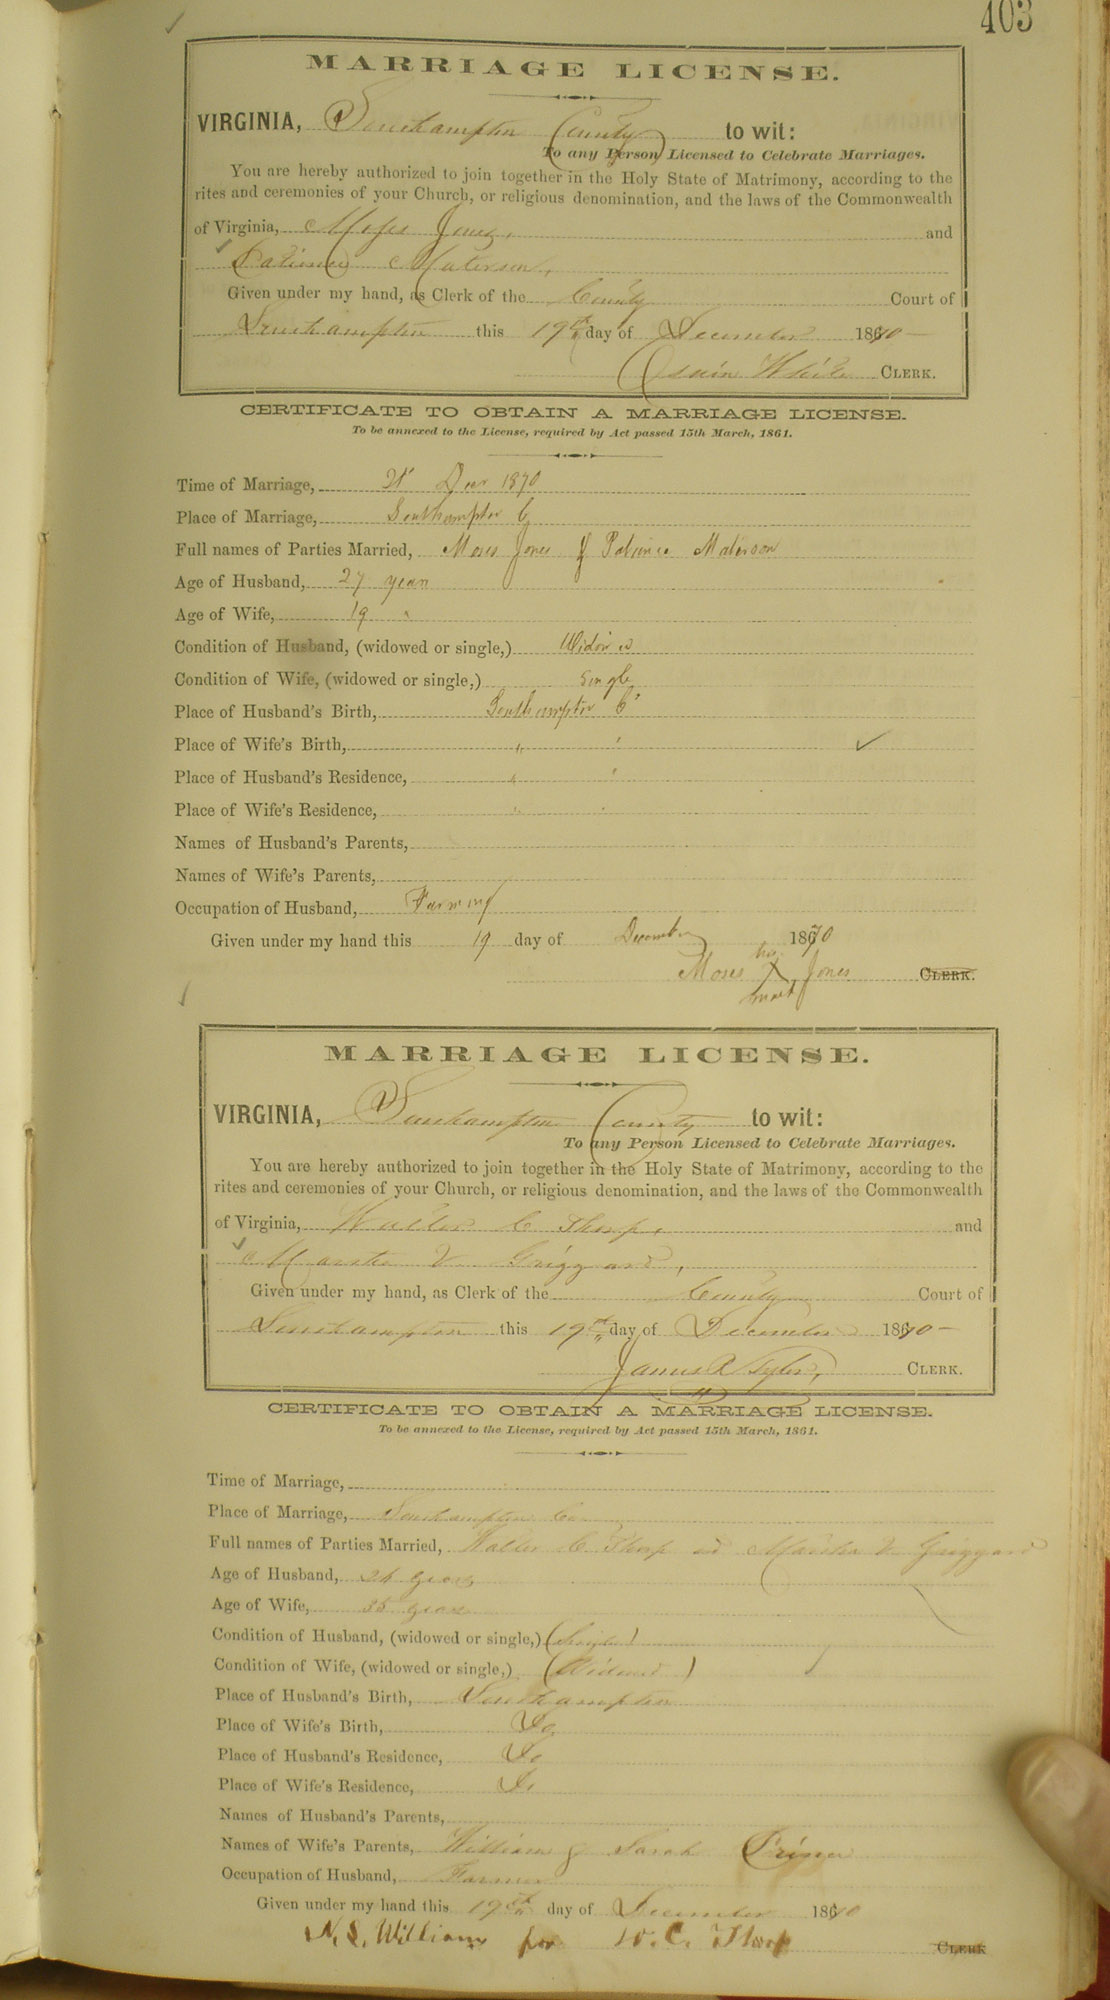 403
MARRIAGE LICENSE.
VIRGINIA, Southampton County to wit:
To any Person Licensed to Celebrate Marriages.
You are hereby authorized to join together in the Holy State of Matrimony, according to the
rites and ceremonies of your Church, or religious denomination, and the laws of the Commonwealth
of Virginia, Moses Jones, and
Patience
Given under my hand, as Clerk of the County Court of
Southampton this 19th day of December 1870
White CLERK.
CERTIFICATE TO OBTAIN A MARRIAGE LICENSE.
To be annexed to the License, required by Act passed 15th March, 1861.
Time of Marriage, 1870
Place of Marriage, Southampton C
Full names of Parties Married, Moses Jones & Patience
Age of Husband, 27 years
Age of Wife, 19 "
Condition of Husband, (widowed or single,)
Condition of Wife, (widowed or single,) Single
Place of Husband's Birth, Southampton Co
Place of Wife's Birth, " "
Place of Husband's Residence, " "
Place of Wife's Residence, " "
Names of Husband's Parents,
Names of Wife's Parents,
Occupation of Husband, Farming
Given under my hand this 19 day of December 1870
his
Moses X Jones CLERK.
mark
MARRIAGE LICENSE.
VIRGINIA, Southampton County to wit:
To any Person Licensed to Celebrate Marriages.
You are hereby authorized to join together in the Holy State of Matrimony, according to the
rites and ceremonies of your Church, or religious denomination, and the laws of the Commonwealth
of Virginia, Walter C Thorp, and
Martha V Griggard,
Given under my hand, as Clerk of the County Court of
Southampton this 19th day of December 1870
James R Tyler, CLERK.
CERTIFICATE TO OBTAIN A MARRIAGE LICENSE.
To be annexed to the License, required by Act passed 15th March, 1861.
Time of Marriage,
Place of Marriage, Southampton Co
Full names of Parties Married, Walter C Thorp and Martha V Griggard
Age of Husband, 24 years
Age of Wife, 35 years
Condition of Husband, (widowed or single,) (Single)
Condition of Wife, (widowed or single,) (Widowed)
Place of Husband's Birth, Southampton
Place of Wife's Birth, Do
Place of Husband's Residence, Do
Place of Wife's Residence, Do
Names of Husband's Parents,
Names of Wife's Parents, William & Sarah
Occupation of Husband, Farmer
Given under my hand this 19th day of December 1870
Williams for W. C. Thorp CLERK